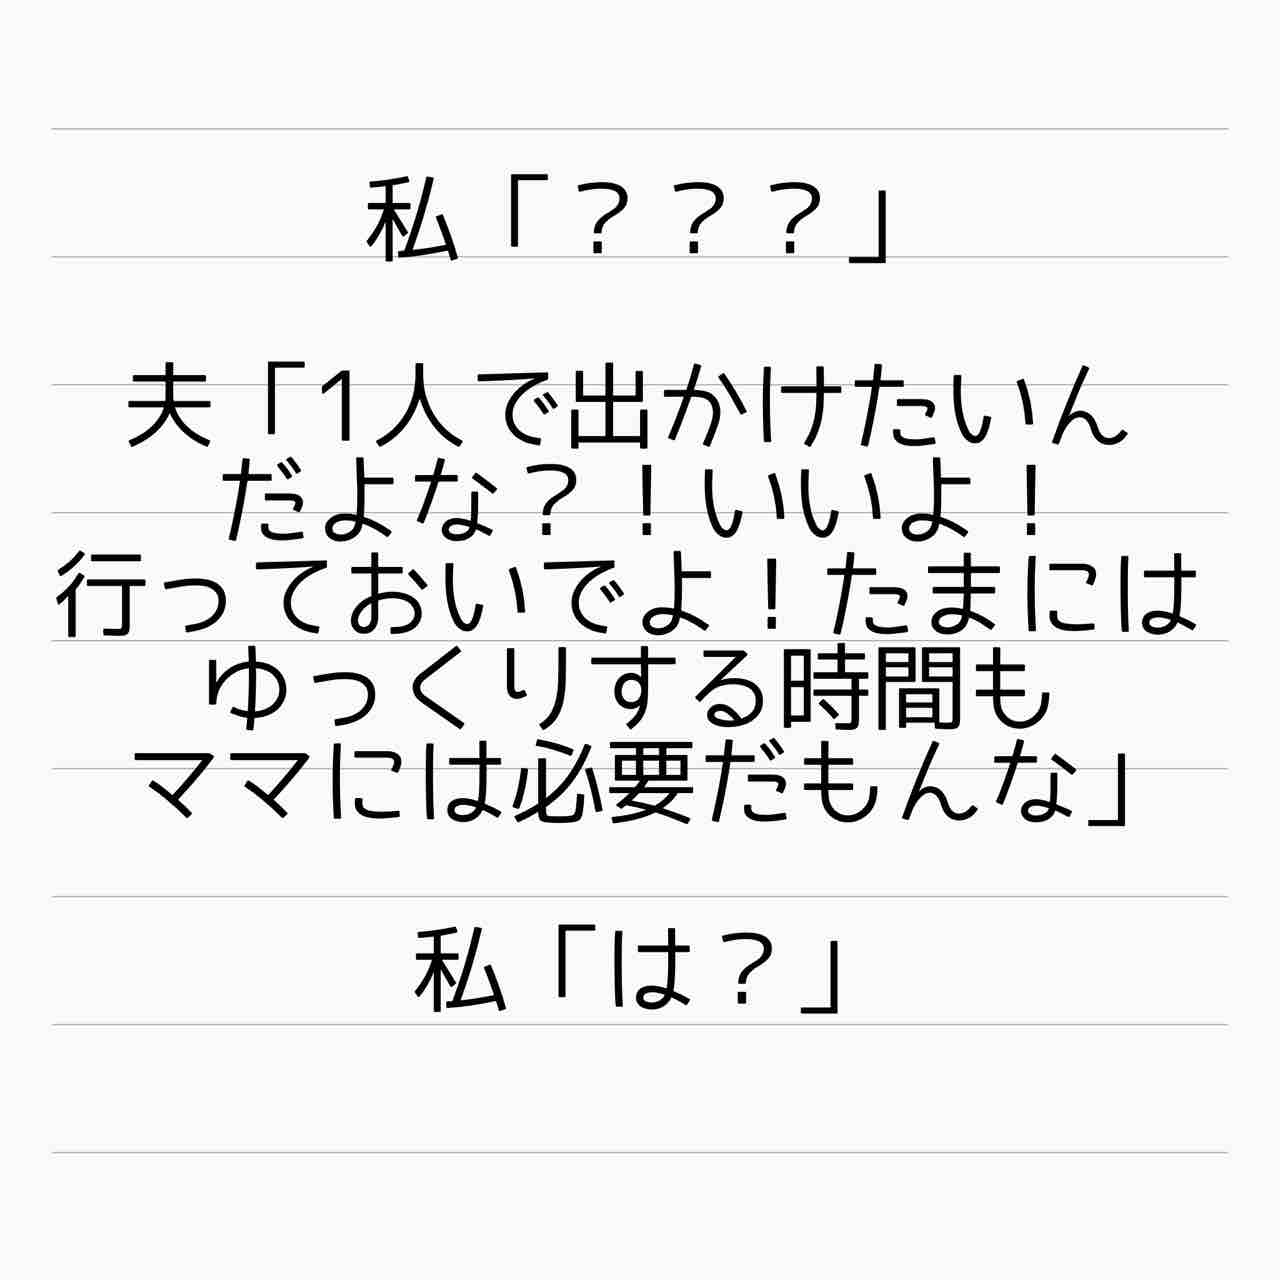 私「？？？」
夫「1人で出かけたいん
だよな？！いいよ！
行っておいでよ！たまには
ゆっくりする時間も
ママには必要だもんな」
私「は？」